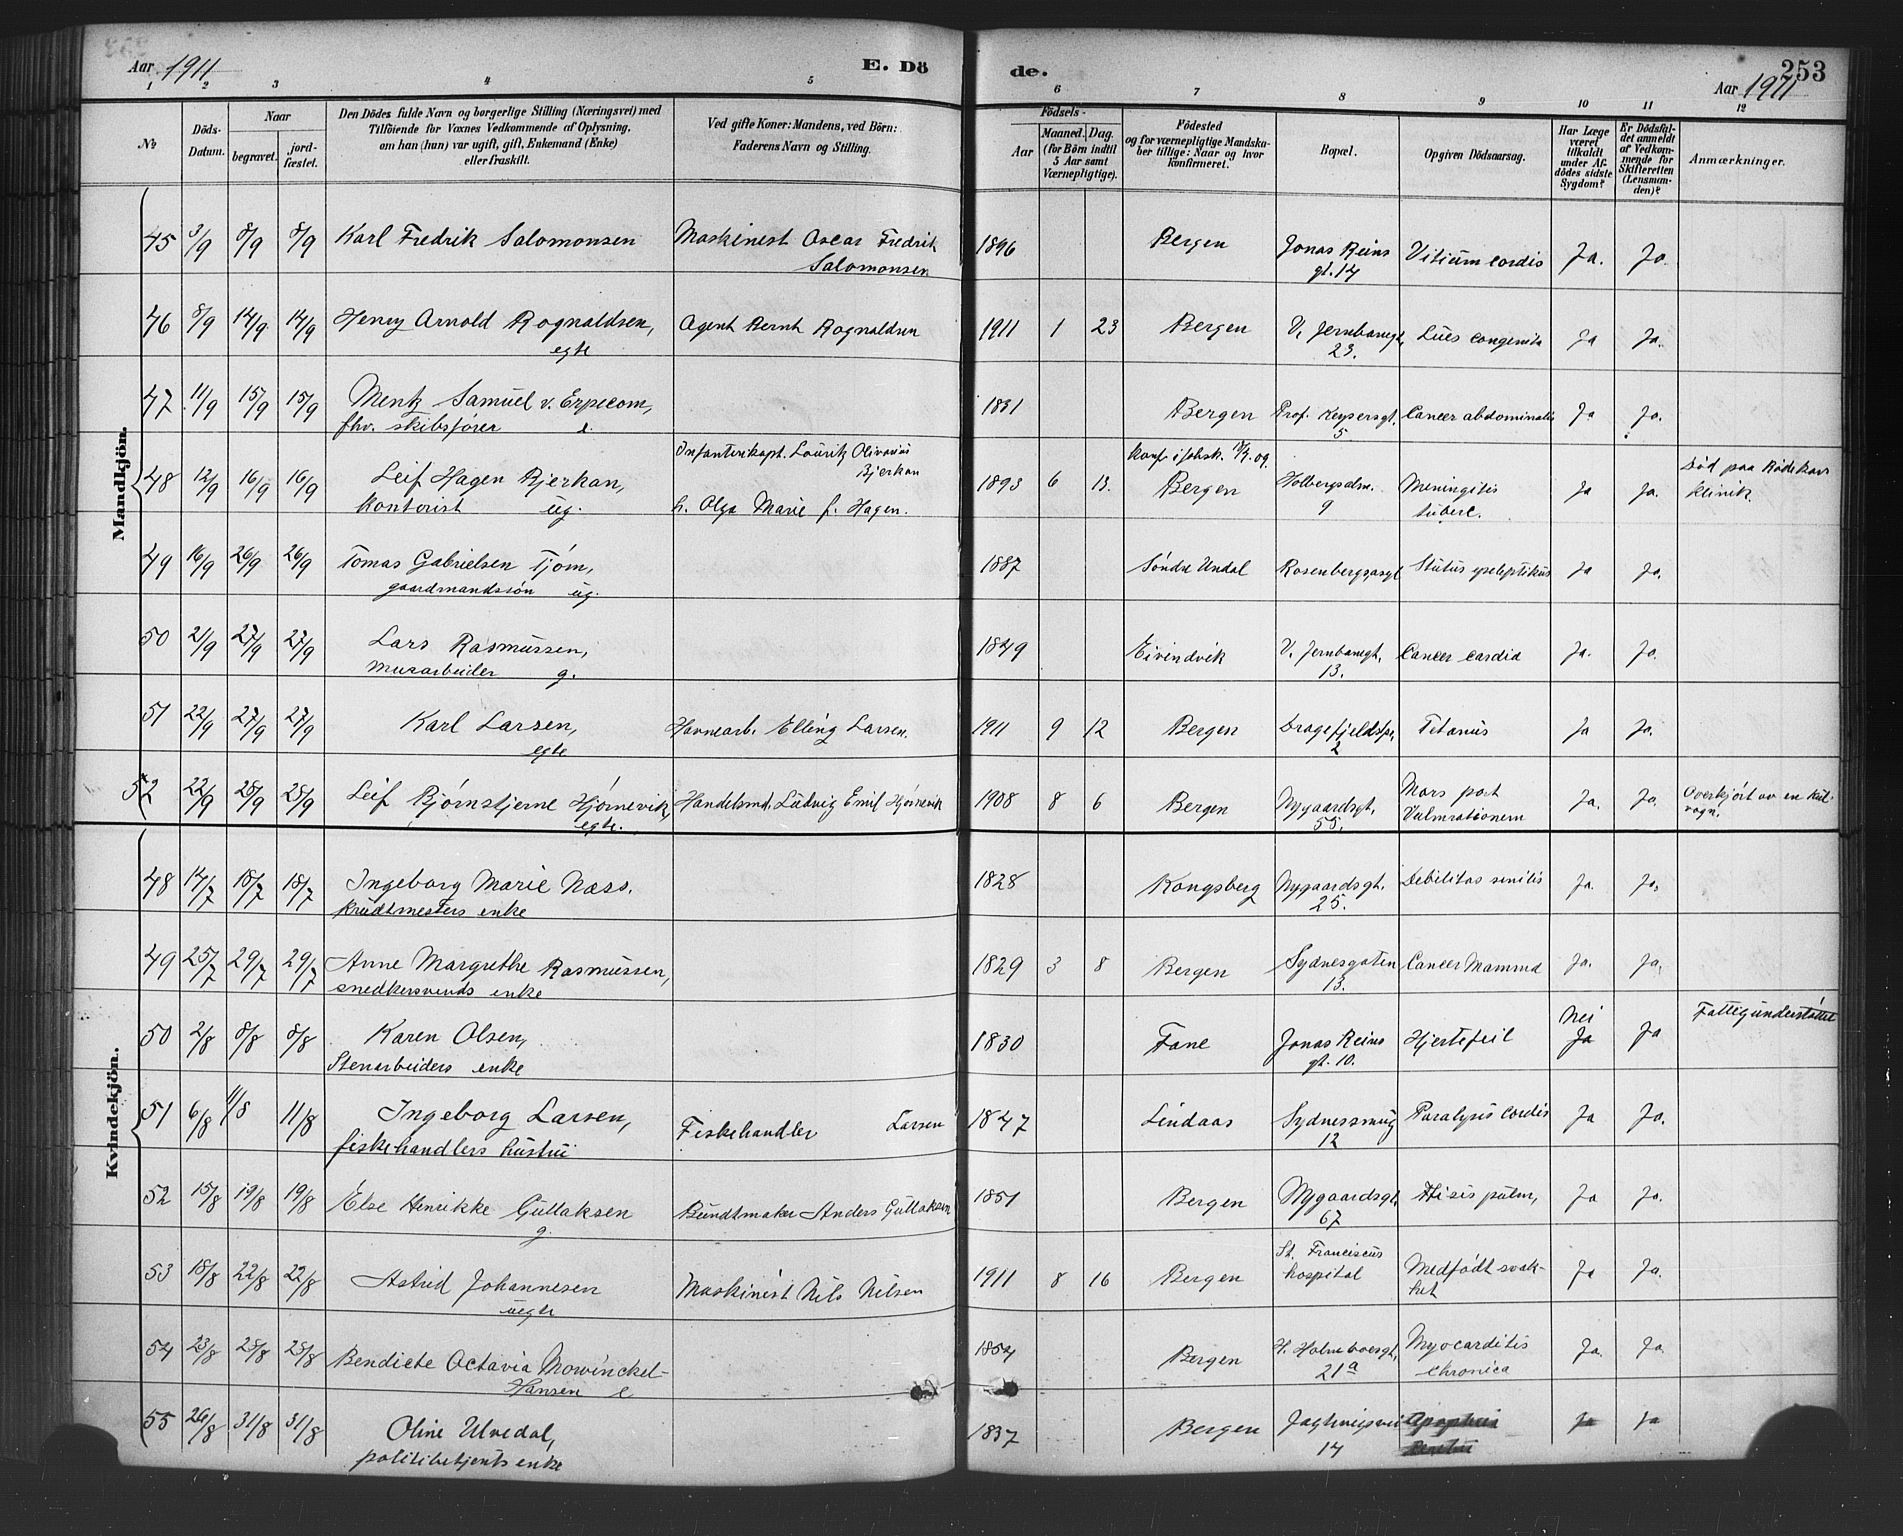 Aar 1911
E. Dö
de.
253
Aar 1911
1 2 3 4 5 6 7 8 9 10 11 12
№
Döds-Datum.
Naar
begravet.
jord-fæstet.
Den Dödes fulde Navn og borgerlige Stilling (Næringsvei) med
Tilföiende for Voxnes Vedkommende af Oplysning,
om han (hun) var ugift, gift, Enkemand (Enke)
eller fraskilt.
Ved gifte Koner: Mandens, ved Börn:
Faderens Navn og Stilling.
Födsels-
Aar
Maaned. Dag.
(for Börn indtil
5 Aar samt
Værnepligtige).
Födested
og for værnepligtige Mandska-
ber tillige: Naar og hvor
konfirmeret.
Bopæl.
Opgiven Dödsaarsag.
Har Læge
været
tilkaldt
under Af-
dödes sidste
Sygdom?
Er Dödsfal-
det anmeldt
af Vedkom-
mende for
Skifteretten
(Lensman-
den)?
Anmærkninger.
Mandkjön.
45 3/9 8/9 8/9 Karl Fredrik Salomonsen Maskinist Oscar Fredrik
Salomonsen 1896 Bergen Jonas Reins
gt. 14 Vitium cordis Ja. Ja
46 8/9 14/9 14/9 Henry Arnold Rognaldsen,
egte Agent Bernt Rognaldsen 1911 1 23 Bergen V. Jernbanegt,
23. Lues congenita Ja Ja.
47 11/9 15/9 15/9 Mentz Samuel v. Erpecom,
fhv. skibsfører e. 1831 Bergen Prof. Keysersgt.
5 Cancer abdominalis Ja Ja.
48 12/9 16/9 16/9 Leif Hagen Bjerkan,
kontorist ug. Infanterikapt. Lauritz Olivarius
Bjerkan
h. Olga Marie f. Hagen. 1893 6 13. Bergen Holbergsalm.
9 Meningitis
tuberc. Ja Ja. Død paa Rødekors
klinik.
49 16/9 26/9 26/9 Tomas Gabrielsen Tjøm,
gaardmandssøn ug. 1887 Søndre Undal Status epeleptikus Ja Ja.
50 21/9 27/9 27/9 Lars Rasmussen,
murarbeider g. 1849 Eivindvik V. Jernbanegt,
13. Cancer cardia Ja. Ja.
51 22/9 27/9 27/9 Karl Larsen,
egte Havnearb. Elling Larsen. 1911 9 12 Bergen Dragefjeldstr.
2 Tetanus Ja Ja.
52 22/9 28/9 28/9 Leif Bjørnstjerne Hjørnevik,
egte. Handelsmd. Ludvig Emil Hjørnevik 1908 8 6 Bergen Nygaardsgt,
55. Mors post
Vulnerationem Ja. Ja. Overkjørt av en kul-
vogn.
Kvindekjön.
48 14/7 18/7 18/7 Ingeborg Marie Næss.
krudtmesters enke 1828 Kongsberg Nygaardsgt.
25. Debilitas senilis Ja. Ja.
49 25/7 29/7 29/7 Anne Margrethe Rasmussen,
snedkersvends enke 1829 3 8 Bergen Sydnesgaten
13. Cancer Mamma Ja. Ja.
50 2/8 8/8 8/8 Karen Olsen,
Stenarbeiders enke 1830 Fane Jonas Reins
gt. 10. Hjertefeil Nei
Ja Ja Fattigunderstøttet
51 6/8 11/8 11/8 Ingeborg Larsen,
fiskehandlers hustru Fiskehandler Larsen 1847 Lindaas Sydnessmug
12 Paralysis cordis Ja Ja.
52 15/8 19/8 19/8 Else Henrikke Gullaksen
g. Bundtmaker Anders Gullaksen 1851 Bergen Nygaardsgt,
67 Ftisis pulm, Ja Ja.
53 18/8 22/8 22/8 Astrid Johannesen
uegte Maskinist Nils Nilsen 1911 8 16 Bergen St. Franciscus
hospital Medfødt svak-
het Ja Ja.
54 23/8 28/8 28/8 Bendicte Octavia Mowinckel-
Hansen e 1854 Bergen H. Holmboesgt,
21a Myocarditis
chronica Ja. Ja.
55 26/8 31/8 31/8 Oline Ulvedal,
politibetjents enke 1837 Bergen 14 Ja Ja